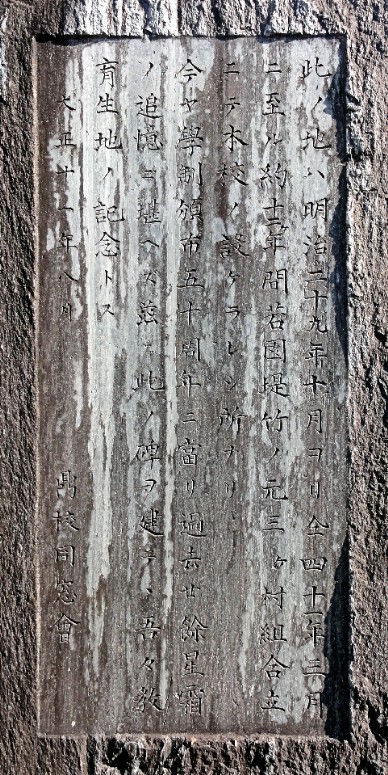 此ノ地ハ明治二十九年十月ヨリ仝四十一年三月
ニ至ル約十二年間若園堤竹ノ元三ヶ村組合立
ニテ本校ノ設ケラレシ所ナリ
今ヤ學制頒布五十周年ニ當リ過去廿餘星霜
ノ追憶ニ堪ヘズ茲ニ此ノ碑ヲ建テヽ吾々敎
育生地ノ記念トス
大正十一年八月 高校同窓會